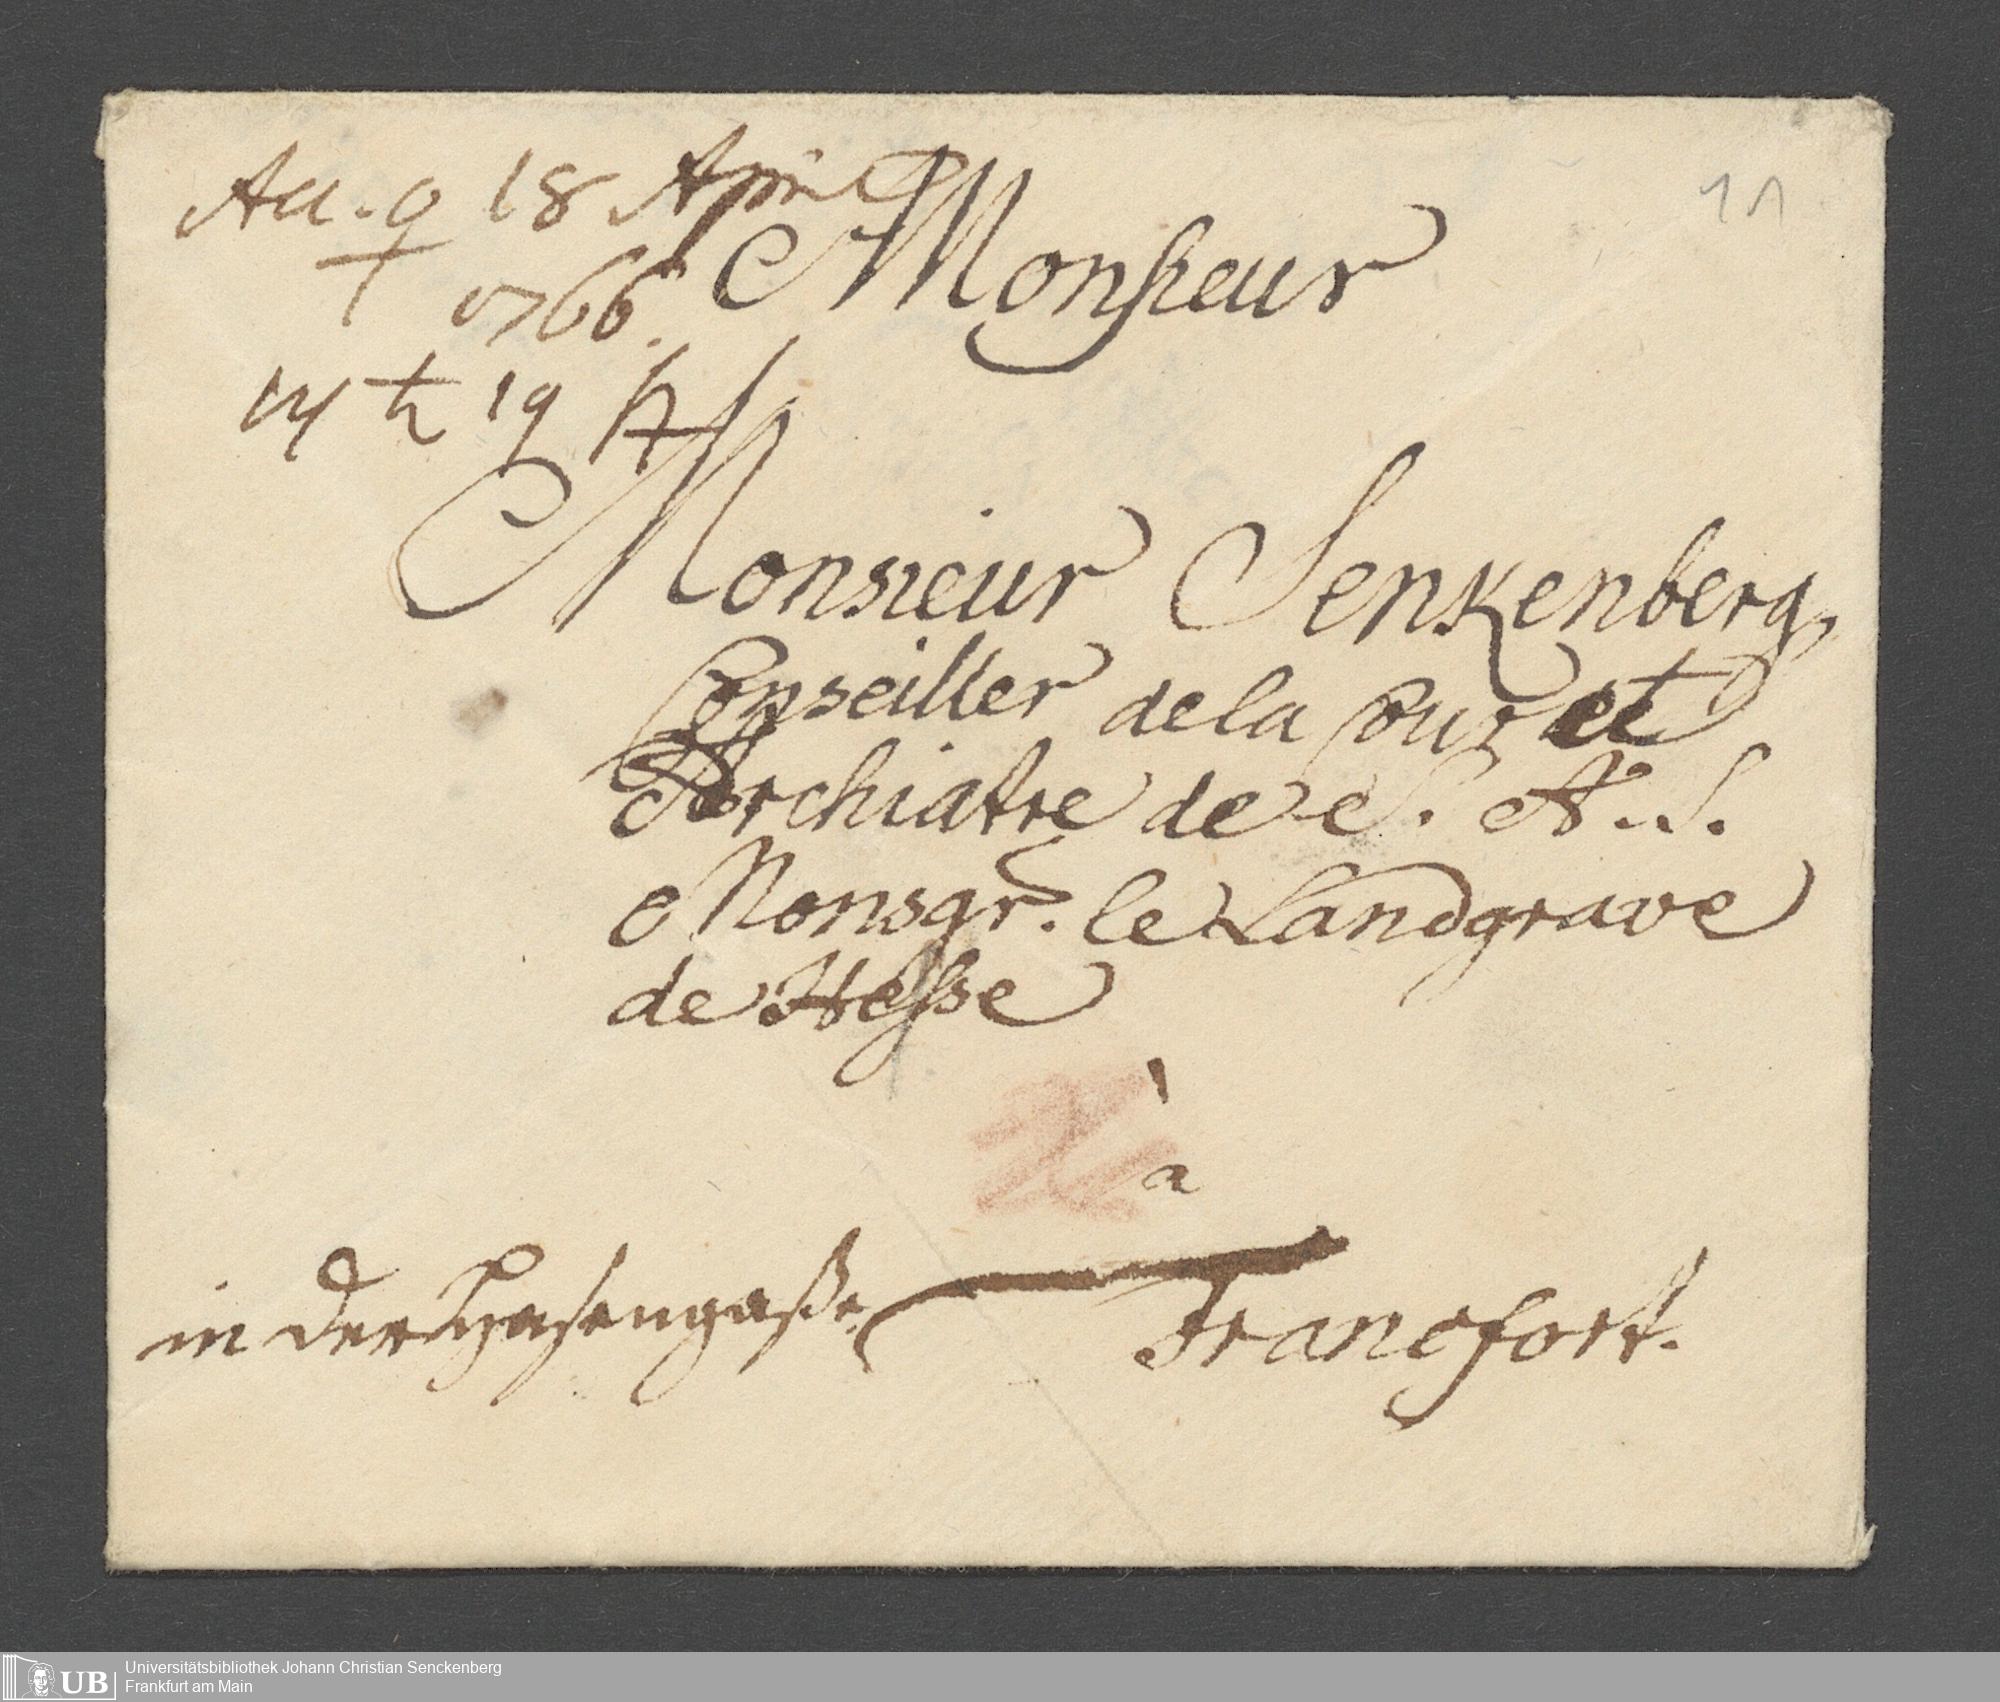 Acc. ♀ 18 April
1766.
♄ 19
11
Monsieur
Monsieur Senkenberg,
Conseiller de la Cour et
Archiatre de S. A. S.
Monsgr. le Landgrave
de Hesse
à
Francfort.
in der Hasengaße
UB
Universitätsbibliothek Johann Christian Senckenberg
Frankfurt am Main